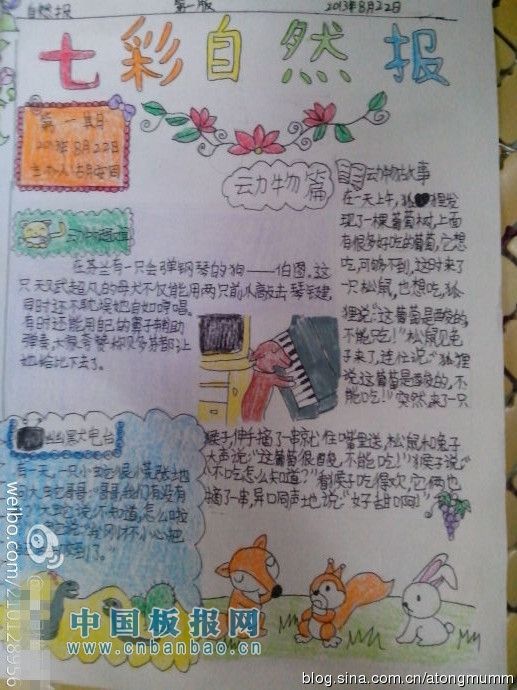 自然报 第一版 2013年8月22日
七彩自然报
第一期
2013年8月22日
动物篇
动物故事
在一天上午,狐狸发
现了一棵葡萄树,上面
有很多好吃的葡萄,它想
吃,可够不到,这时来了
一只松鼠,也想吃,狐
狸说:"这葡萄是酸的,
不能吃!"松鼠见兔
子来了,连忙说:"狐狸
说这葡萄是酸的,不
能吃!"突然来了一只
猴子,伸手摘了一串就往嘴里送,松鼠和兔子
大声说:"这葡萄很酸,不能吃!"猴子说:"
不吃怎么知道?"看猴子吃得欢,它俩也
摘了一串,异口同声地说:"好甜啊!"
在芬兰有一只会弹钢琴的狗——伯图。这
只天才超凡的母犬不仅能用两只前爪敲击琴键,
同时还不耽误她自如哼唱。
有时还能用自己的鼻子辅助
弹奏,大像夸赞称贝多芬都让
她给比下去了。
幽默大电台
有一天,一只小蛇很慌张地
大蛇哥哥:"哥哥我们有没有
大蛇说:"不知道,怎么啦
说:"我刚才不小心把
到了。"
weibo.com/210128956
中国板报网
www.cnbanbao.cn
blog.sina.com.cn/atongmumm